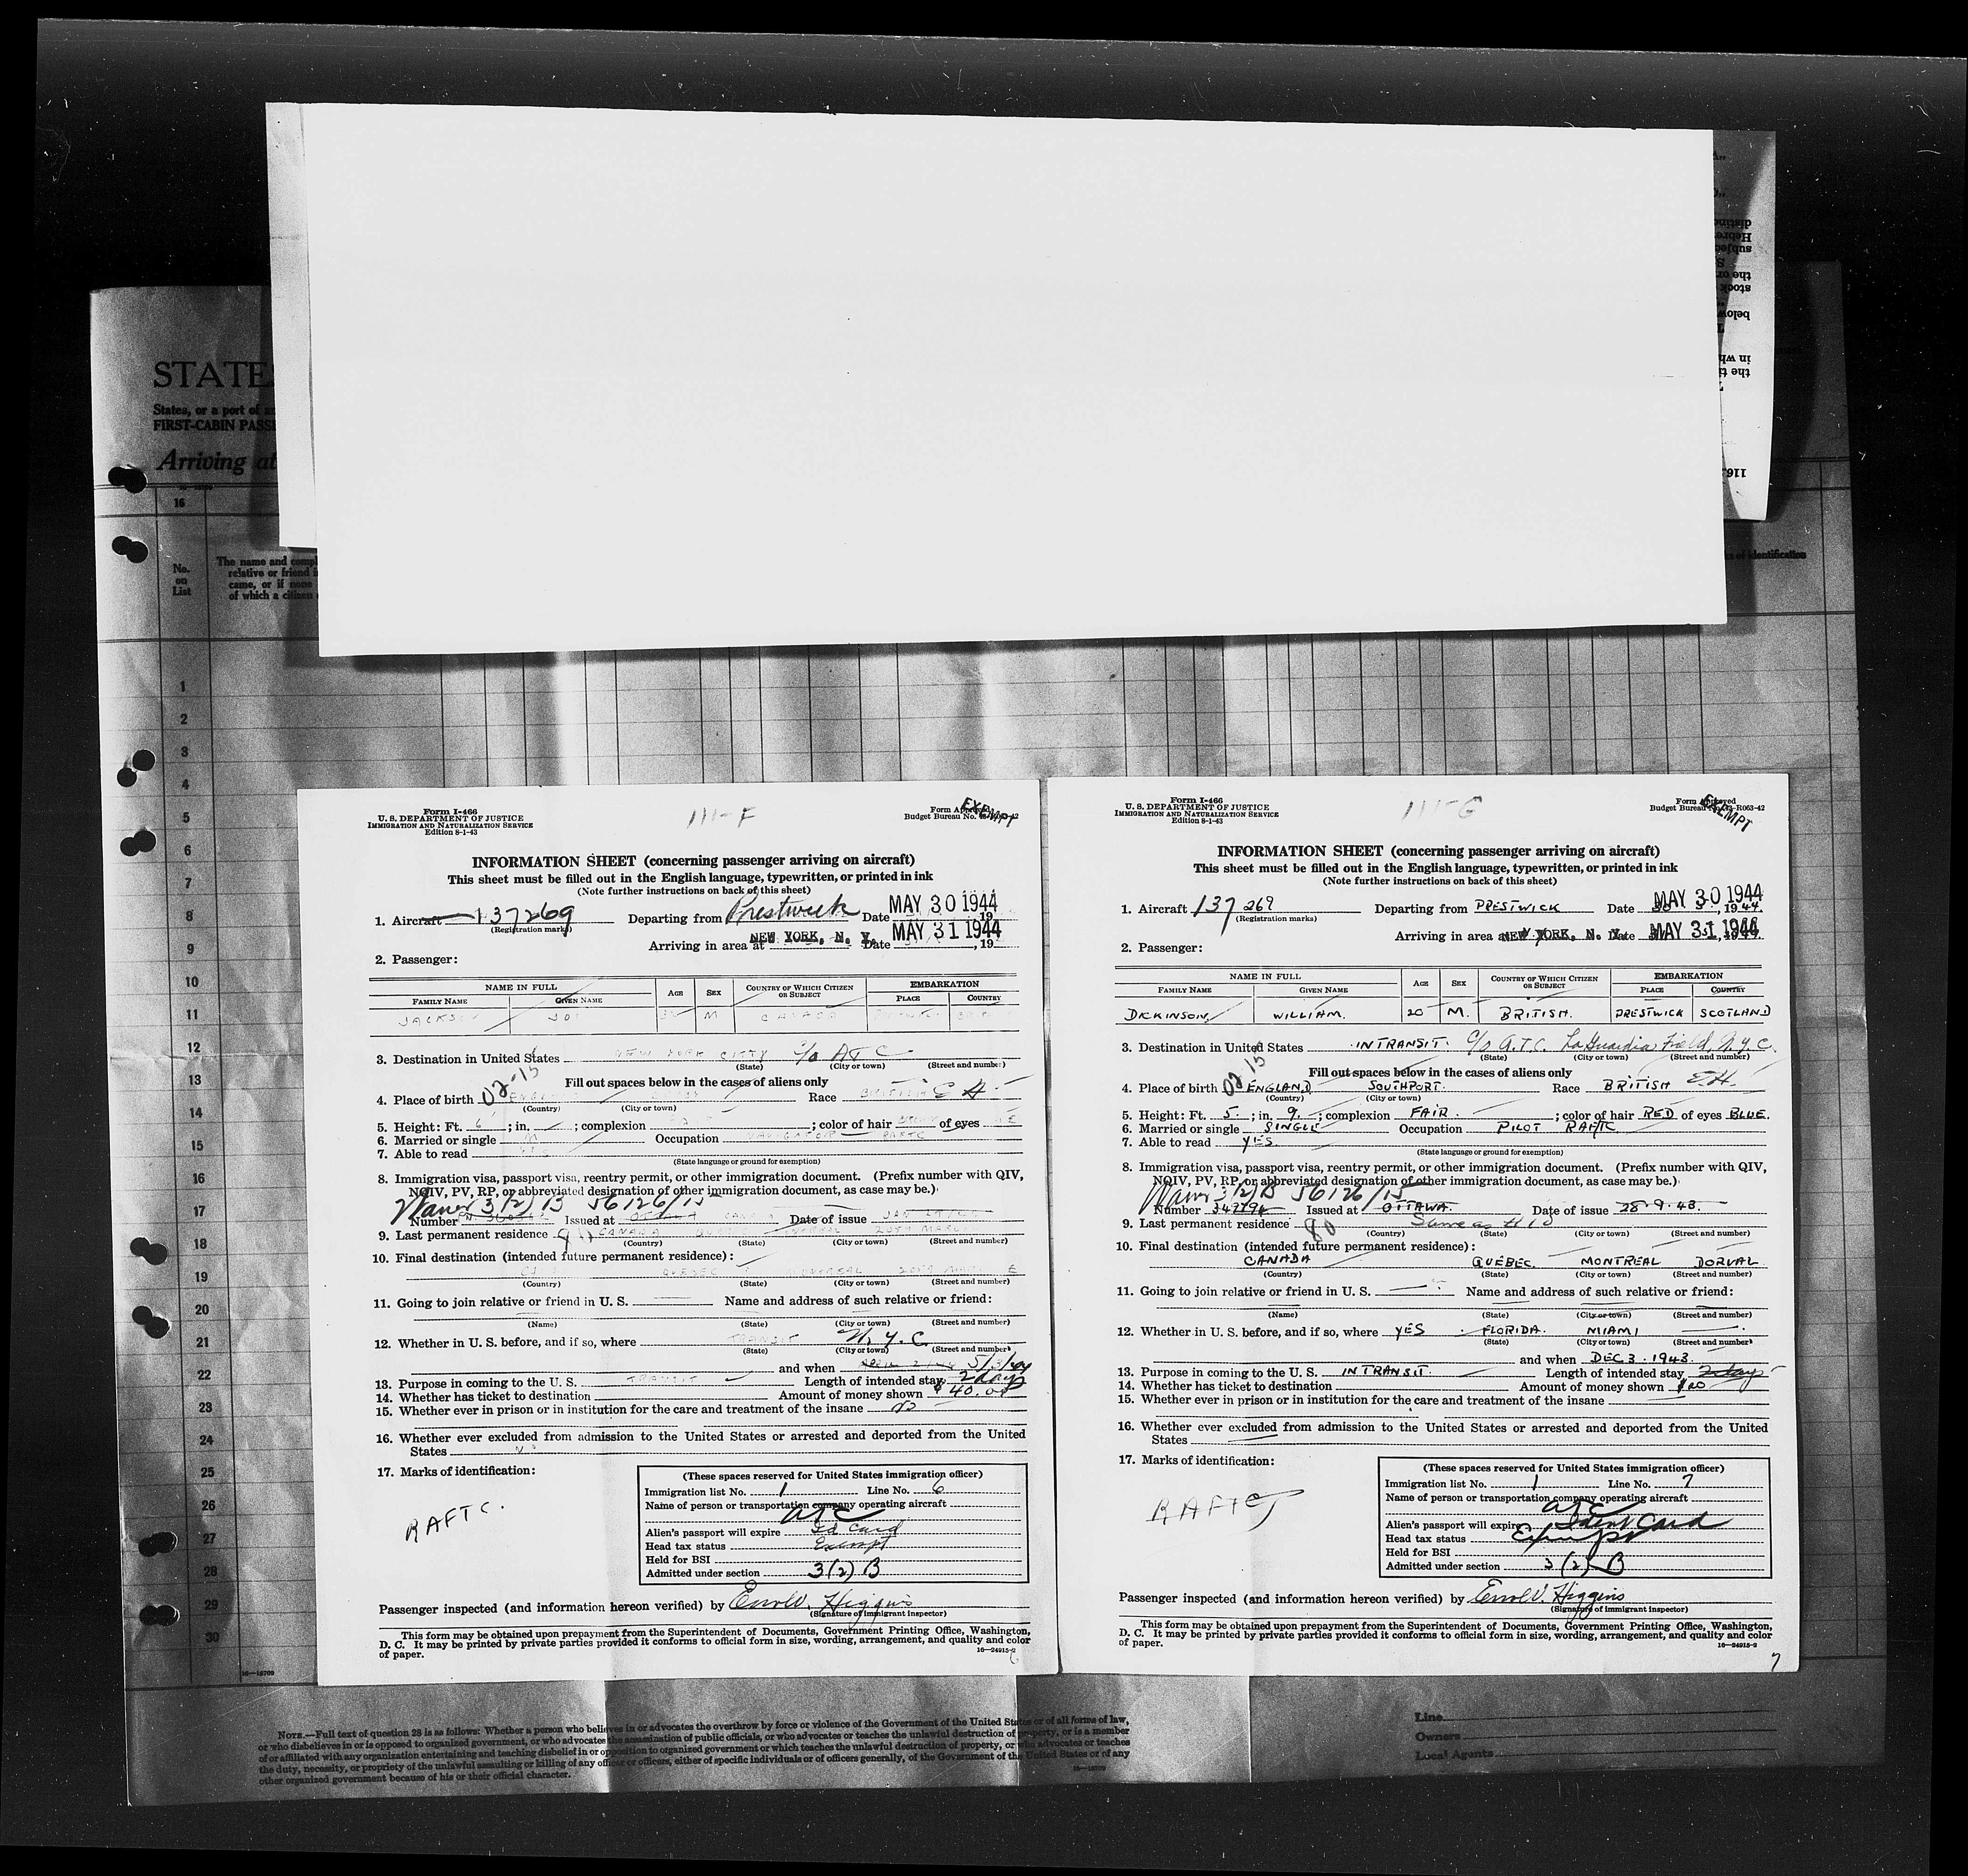 STATE
States, or a port of
FIRST-CABIN PASS
Arriving at
16
No. on List
The name and
relative or friend
came, or if none
of which a citizen
of identification
1
2
3
4
5
6
7
8
9
10
11
12
13
14
15
16
17
18
19
20
21
22
23
24
25
26
27
28
29
30
Form I-466
U. S. DEPARTMENT OF JUSTICE
IMMIGRATION AND NATURALIZATION SERVICE
Edition 8-1-43
111-F
Budget Bureau No.
EXEMPT
INFORMATION SHEET (concerning passenger arriving on aircraft)
This sheet must be filled out in the English language, typewritten, or printed in ink
(Note further instructions on back of this sheet)
1. Aircraft 137269 Departing from Prestwick Date MAY 30 1944
(Registration marks)
Arriving in area at NEW YORK, N. Y. Date MAY 31 1944
2. Passenger:
NAME IN FULL AGE SEX COUNTRY OF WHICH CITIZEN OR SUBJECT EMBARKATION
FAMILY NAME GIVEN NAME PLACE COUNTRY
M CANADA
3. Destination in United States NEW YORK CITY c/o ATC
(State) (City or town) (Street and number)
Fill out spaces below in the cases of aliens only
4. Place of birth Race
(Country) (City or town)
5. Height: Ft. 6 ; in. ; complexion ; color of hair of eyes
6. Married or single M Occupation NAVIGATOR RAFTC
7. Able to read
(State language or ground for exemption)
8. Immigration visa, passport visa, reentry permit, or other immigration document. (Prefix number with QIV,
NQIV, PV, RP, or abbreviated designation of other immigration document, as case may be.)
Waiver 3(2)B 56126/15
Number Issued at OTTAWA CANADA Date of issue
9. Last permanent residence CANADA
(Country) (State) (City or town) (Street and number)
10. Final destination (intended future permanent residence):
QUEBEC MONTREAL
(Country) (State) (City or town) (Street and number)
11. Going to join relative or friend in U. S. Name and address of such relative or friend:
(Name) (State) (City or town) (Street and number)
12. Whether in U. S. before, and if so, where TRANSIT N.Y.C.
(State) (City or town) (Street and number)
and when 5/3/44
13. Purpose in coming to the U. S. TRANSIT Length of intended stay 2 days
14. Whether has ticket to destination Amount of money shown $40.00
15. Whether ever in prison or in institution for the care and treatment of the insane No
16. Whether ever excluded from admission to the United States or arrested and deported from the United
States No
17. Marks of identification:
RAFTC.
(These spaces reserved for United States immigration officer)
Immigration list No. 1 Line No. 6
Name of person or transportation company operating aircraft
ATC
Alien's passport will expire Id Card
Head tax status Exempt
Held for BSI
Admitted under section 3(2)B
Passenger inspected (and information hereon verified) by Errol V. Higgins
(Signature of immigrant inspector)
This form may be obtained upon prepayment from the Superintendent of Documents, Government Printing Office, Washington,
D. C. It may be printed by private parties provided it conforms to official form in size, wording, arrangement, and quality and color
of paper.
16—24915-2
Form I-466
U. S. DEPARTMENT OF JUSTICE
IMMIGRATION AND NATURALIZATION SERVICE
Edition 8-1-43
111-G
Form Approved
Budget Bureau No. 43-R063-42
EXEMPT
INFORMATION SHEET (concerning passenger arriving on aircraft)
This sheet must be filled out in the English language, typewritten, or printed in ink
(Note further instructions on back of this sheet)
1. Aircraft 137269 Departing from PRESTWICK Date MAY 30 1944
(Registration marks)
Arriving in area at NEW YORK, N. Y. Date MAY 31 1944
2. Passenger:
NAME IN FULL AGE SEX COUNTRY OF WHICH CITIZEN OR SUBJECT EMBARKATION
FAMILY NAME GIVEN NAME PLACE COUNTRY
DICKINSON WILLIAM. 20 M. BRITISH. PRESTWICK SCOTLAND
3. Destination in United States INTRANSIT. c/o A.T.C. LaGuardia Field, N.Y.C.
(State) (City or town) (Street and number)
Fill out spaces below in the cases of aliens only
4. Place of birth ENGLAND SOUTHPORT. Race BRITISH
(Country) (City or town)
5. Height: Ft. 5. ; in. 9. ; complexion FAIR. ; color of hair RED of eyes BLUE.
6. Married or single SINGLE Occupation PILOT RAFTC
7. Able to read YES.
(State language or ground for exemption)
8. Immigration visa, passport visa, reentry permit, or other immigration document. (Prefix number with QIV,
NQIV, PV, RP, or abbreviated designation of other immigration document, as case may be.)
Waiver 3(2)B 56126/15
Number 349794 Issued at OTTAWA. Date of issue 28.9.43.
9. Last permanent residence Same as #10
(Country) (State) (City or town) (Street and number)
10. Final destination (intended future permanent residence):
CANADA QUEBEC. MONTREAL DORVAL
(Country) (State) (City or town) (Street and number)
11. Going to join relative or friend in U. S. Name and address of such relative or friend:
(Name) (State) (City or town) (Street and number)
12. Whether in U. S. before, and if so, where YES FLORIDA. MIAMI
(State) (City or town) (Street and number)
and when DEC 3. 1943.
13. Purpose in coming to the U. S. INTRANSIT. Length of intended stay 2 days
14. Whether has ticket to destination Amount of money shown $20
15. Whether ever in prison or in institution for the care and treatment of the insane
16. Whether ever excluded from admission to the United States or arrested and deported from the United
States
17. Marks of identification:
RAFTC
(These spaces reserved for United States immigration officer)
Immigration list No. 1 Line No. 7
Name of person or transportation company operating aircraft
ATC
Alien's passport will expire Ident Card
Head tax status Exempt
Held for BSI
Admitted under section 3(2)B
Passenger inspected (and information hereon verified) by Errol V. Higgins
(Signature of immigrant inspector)
This form may be obtained upon prepayment from the Superintendent of Documents, Government Printing Office, Washington,
D. C. It may be printed by private parties provided it conforms to official form in size, wording, arrangement, and quality and color
of paper.
16—24915-2
7
NOTE.—Full text of question 28 is as follows: Whether a person who believes in or advocates the overthrow by force or violence of the Government of the United States or of all forms of law,
or who disbelieves in or is opposed to organized government, or who advocates the assassination of public officials, or who advocates or teaches the unlawful destruction of property, or is a member
of or affiliated with any organization entertaining and teaching disbelief in or opposition to organized government or which teaches the unlawful destruction of property, or who advocates or teaches
the duty, necessity, or propriety of the unlawful assaulting or killing of any officer or officers, either of specific individuals or of officers generally, of the Government of the United States or of any
other organized government because of his or their official character.
Line
Owners
Local Agents